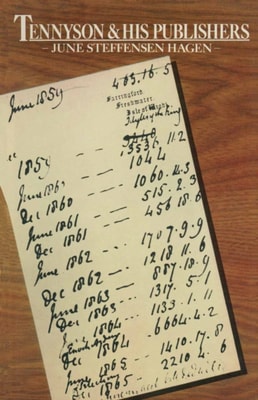 TENNYSON & HIS PUBLISHERS
– JUNE STEFFENSEN HAGEN –
403.16.5
June 1859
Farringford
Freshwater
Isle of Wight
Idylls of the King
1859
June 1860 — 1044
Dec 1860 — 1060.14.3
June 1861 — 515.2.3
Dec 1861 — 456.18.6
June 1862 — 1707.9.9
Dec 1862 — 1218.11.6
June 1863 — 887.18.9
Dec 1863 — 1317.5.1
June 1864 — 1133.1.11
Enoch Arden
Dec 1864 — 6664.4.2
June 1865 — 1410.17.8
Selection
Dec 1865 — 2210.4.6